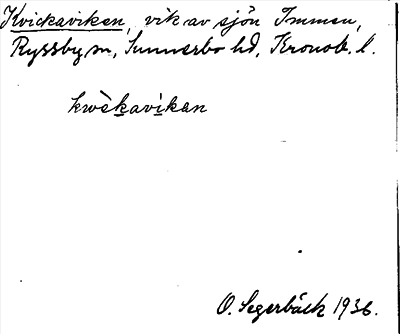 Kvickaviken, vik av sjön Immen,
Ryssby sn, Sunnerbo hd, Kronob. l.
kwèkavikan
O. Segerbäck 1936.